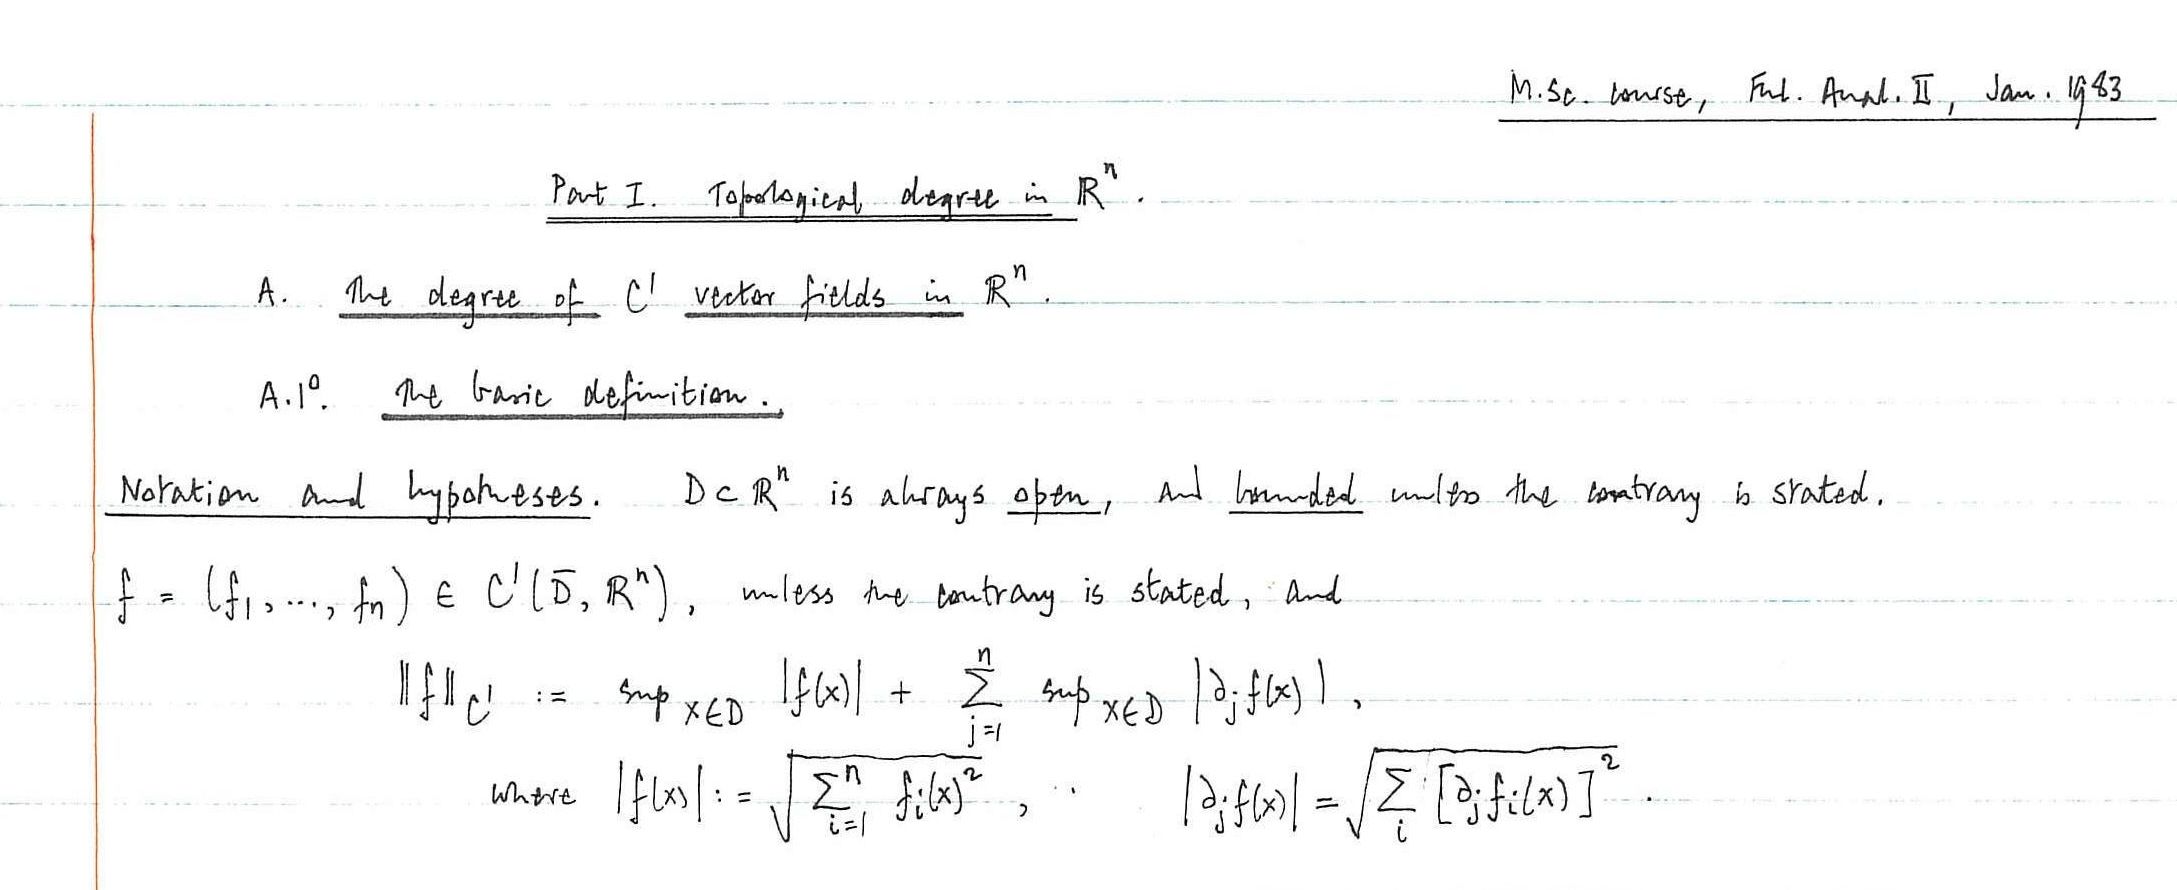 M.Sc. course, Fnl. Anal. II, Jan. 1983
Part I. Topological degree in ℝⁿ.
A. The degree of C¹ vector fields in ℝⁿ.
A.1⁰. The basic definition.
Notation and hypotheses. D ⊂ ℝⁿ is always open, and bounded unless the contrary is stated.
f = (f₁, ..., fₙ) ∈ C¹(D̄, ℝⁿ), unless the contrary is stated, and
‖f‖_{C¹} := sup_{x∈D} |f(x)| + ∑_{j=1}^{n} sup_{x∈D} |∂ⱼf(x)|,
where |f(x)| := √(∑_{i=1}^{n} fᵢ(x)²), |∂ⱼf(x)| = √(∑_i [∂ⱼfᵢ(x)]²).